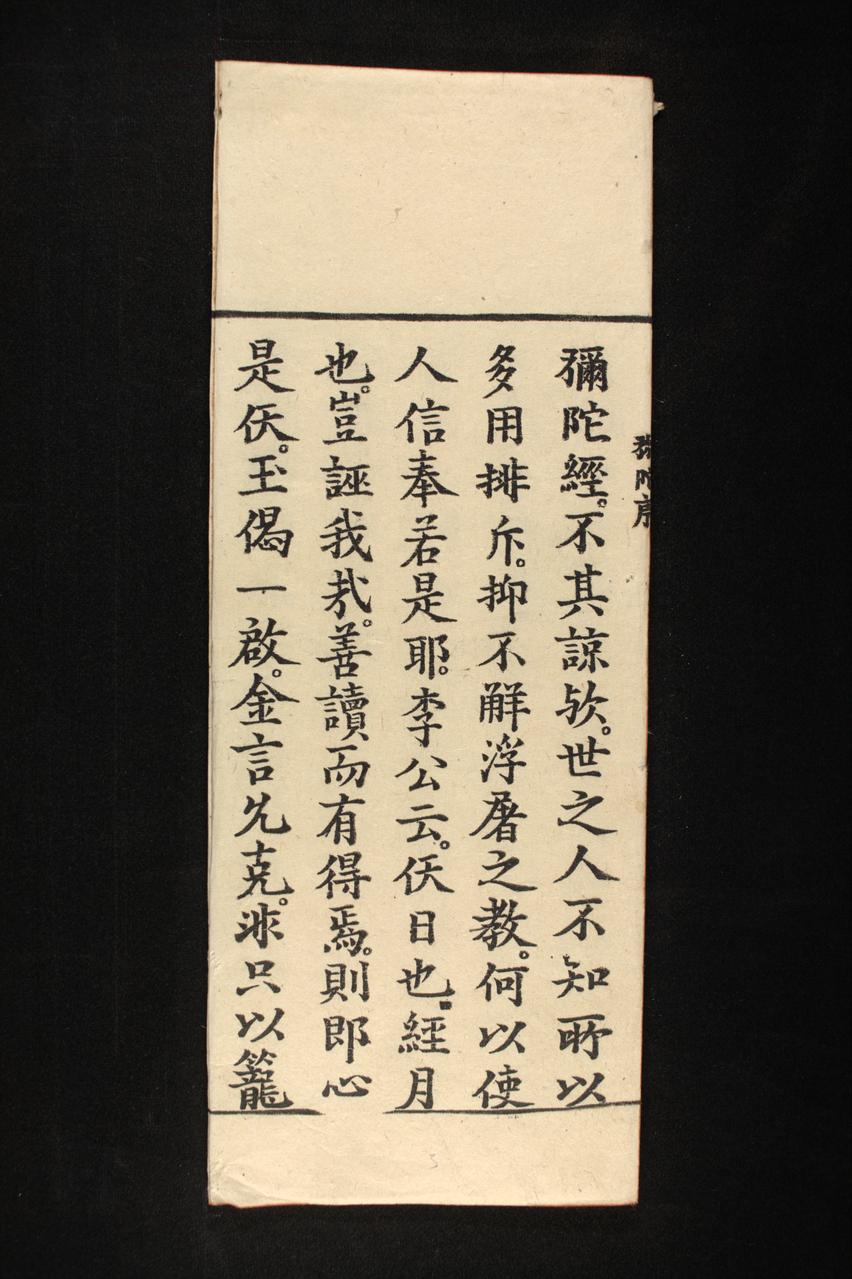 弥陀序
彌陀經。不其諒欤。世之人不知所以
多用排斥。抑不解浮屠之教。何以使
人信奉若是耶。李公云。仸日也。經月
也。豈誣我㢤。善讀而有得焉。則即心
是仸。玉偈一啟。金言允克。非只以籠